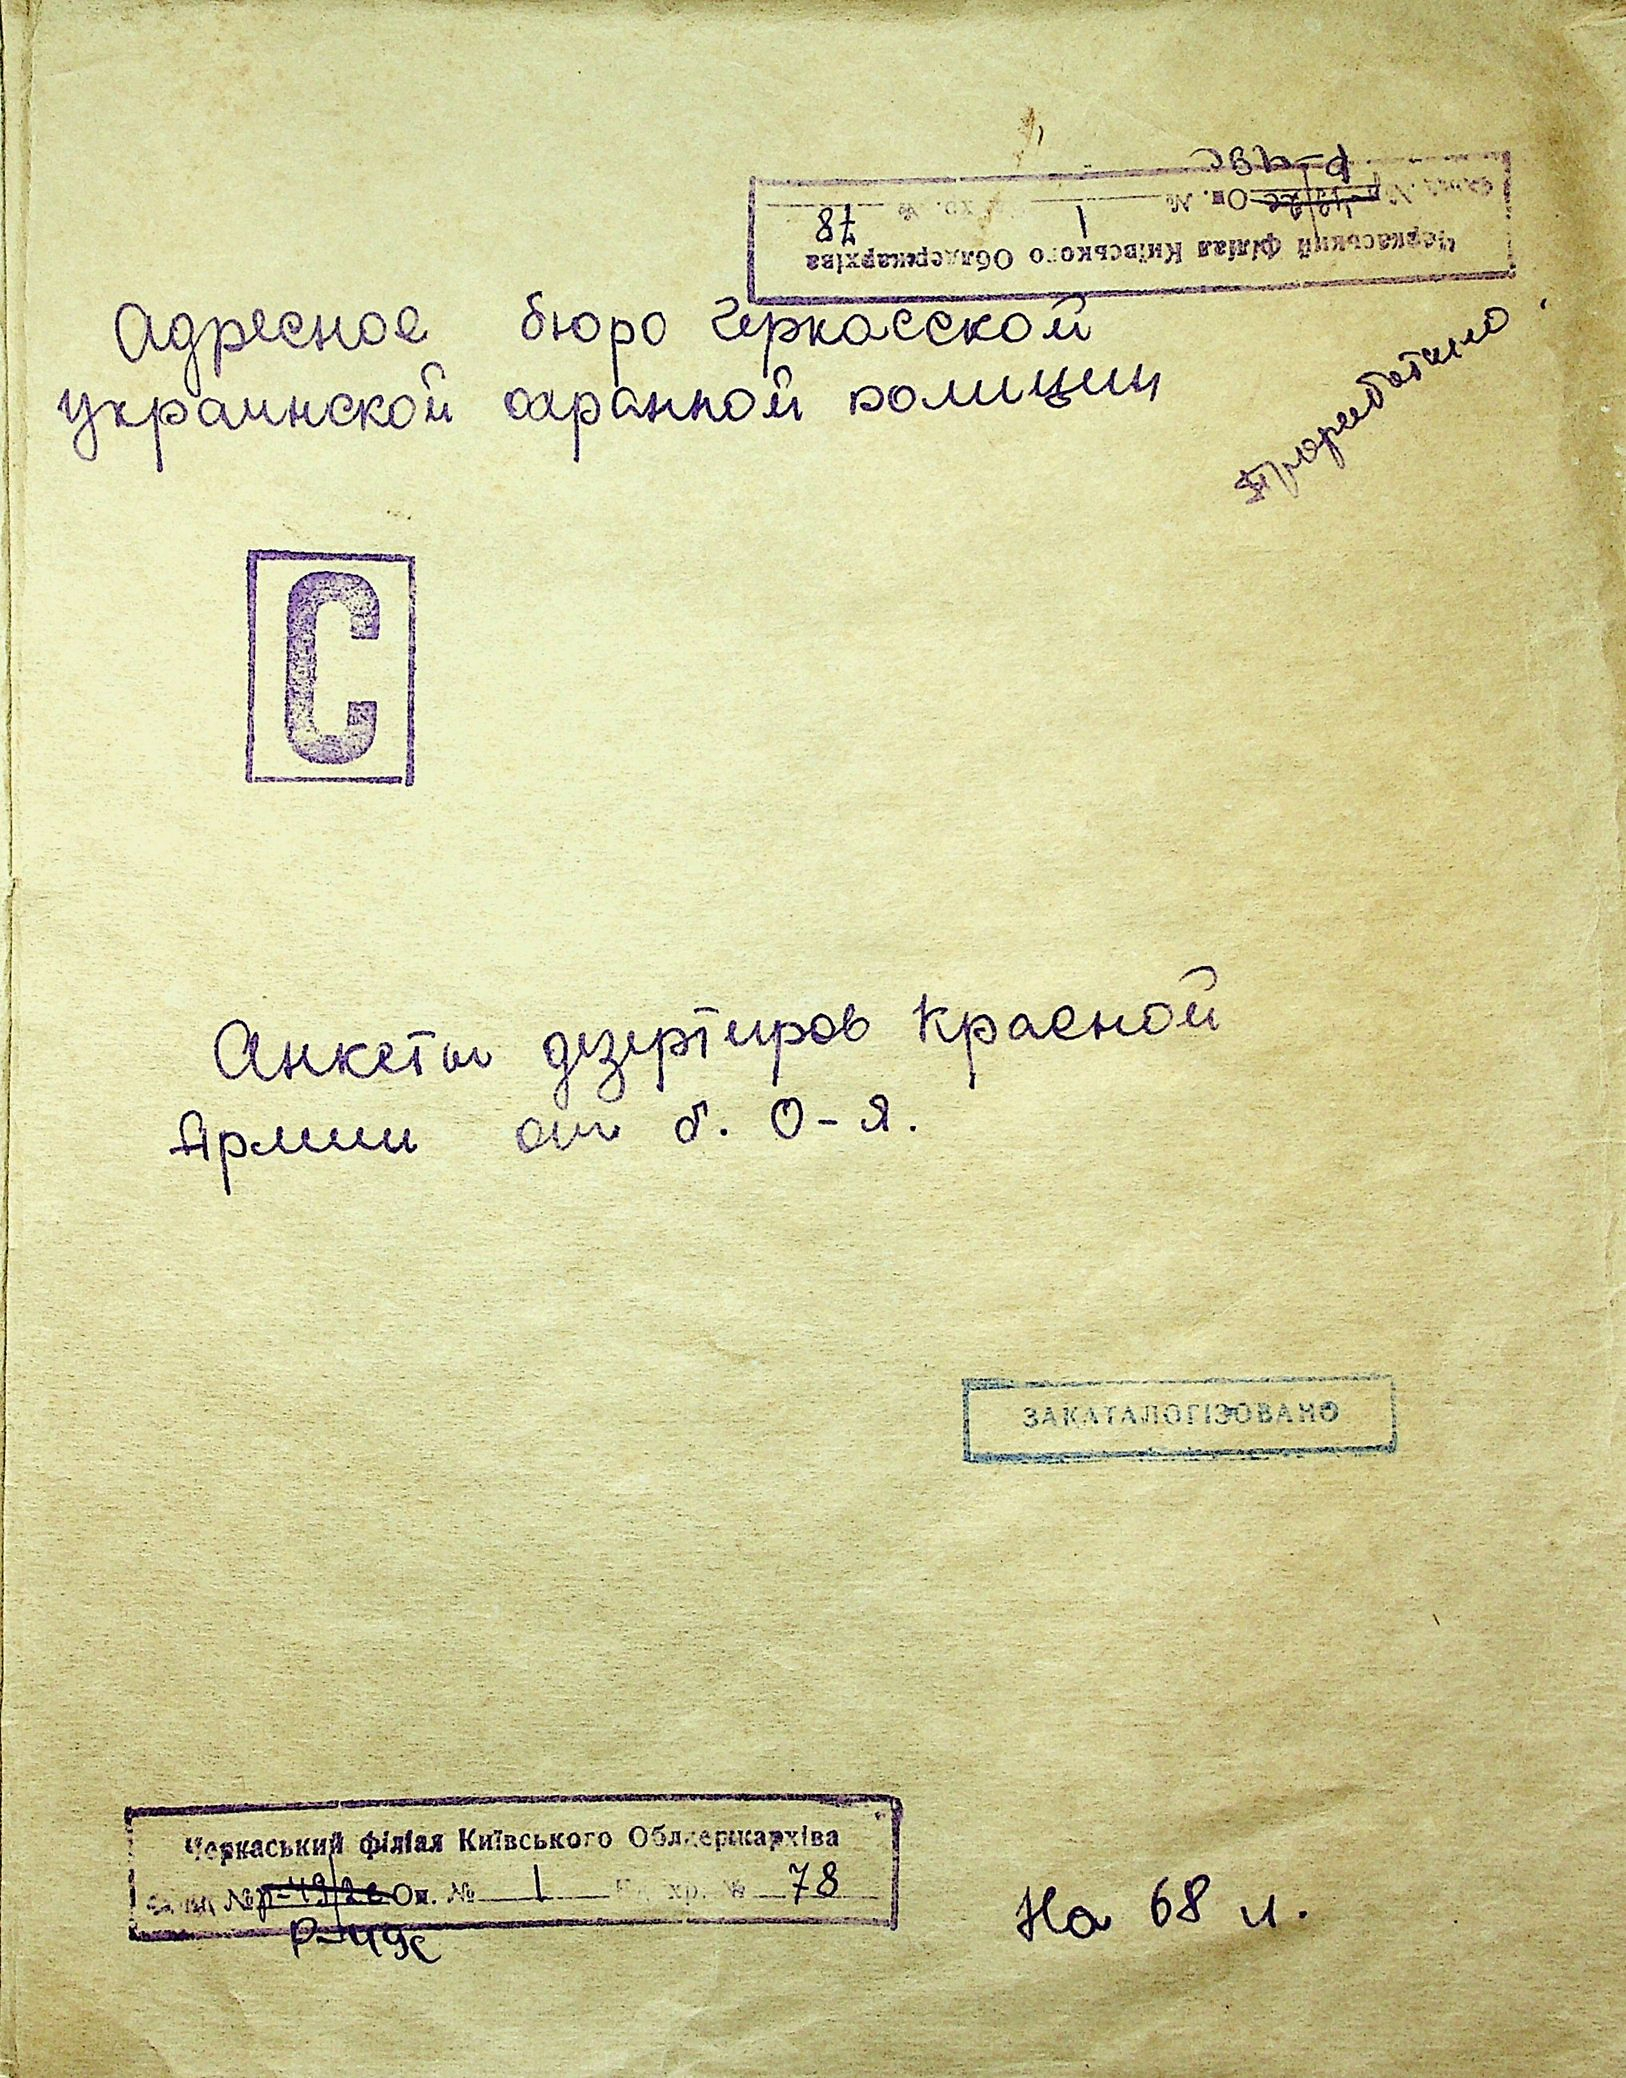 Р-49с
Фонд № Р-49/2с Оп. № 1 Од. хр. № 78
Черкаський філіал Київського Облдержархіва
Адресное бюро Черкасской
украинской охранной полиции
С
Анкеты дезертиров Красной
Армии от б. О-Я.
ЗАКАТАЛОГІЗОВАНО
Черкаський філіал Київського Облдержархіва
Фонд № Р-49/2с Оп. № 1 Од. хр. № 78
Р-49с
На 68 л.